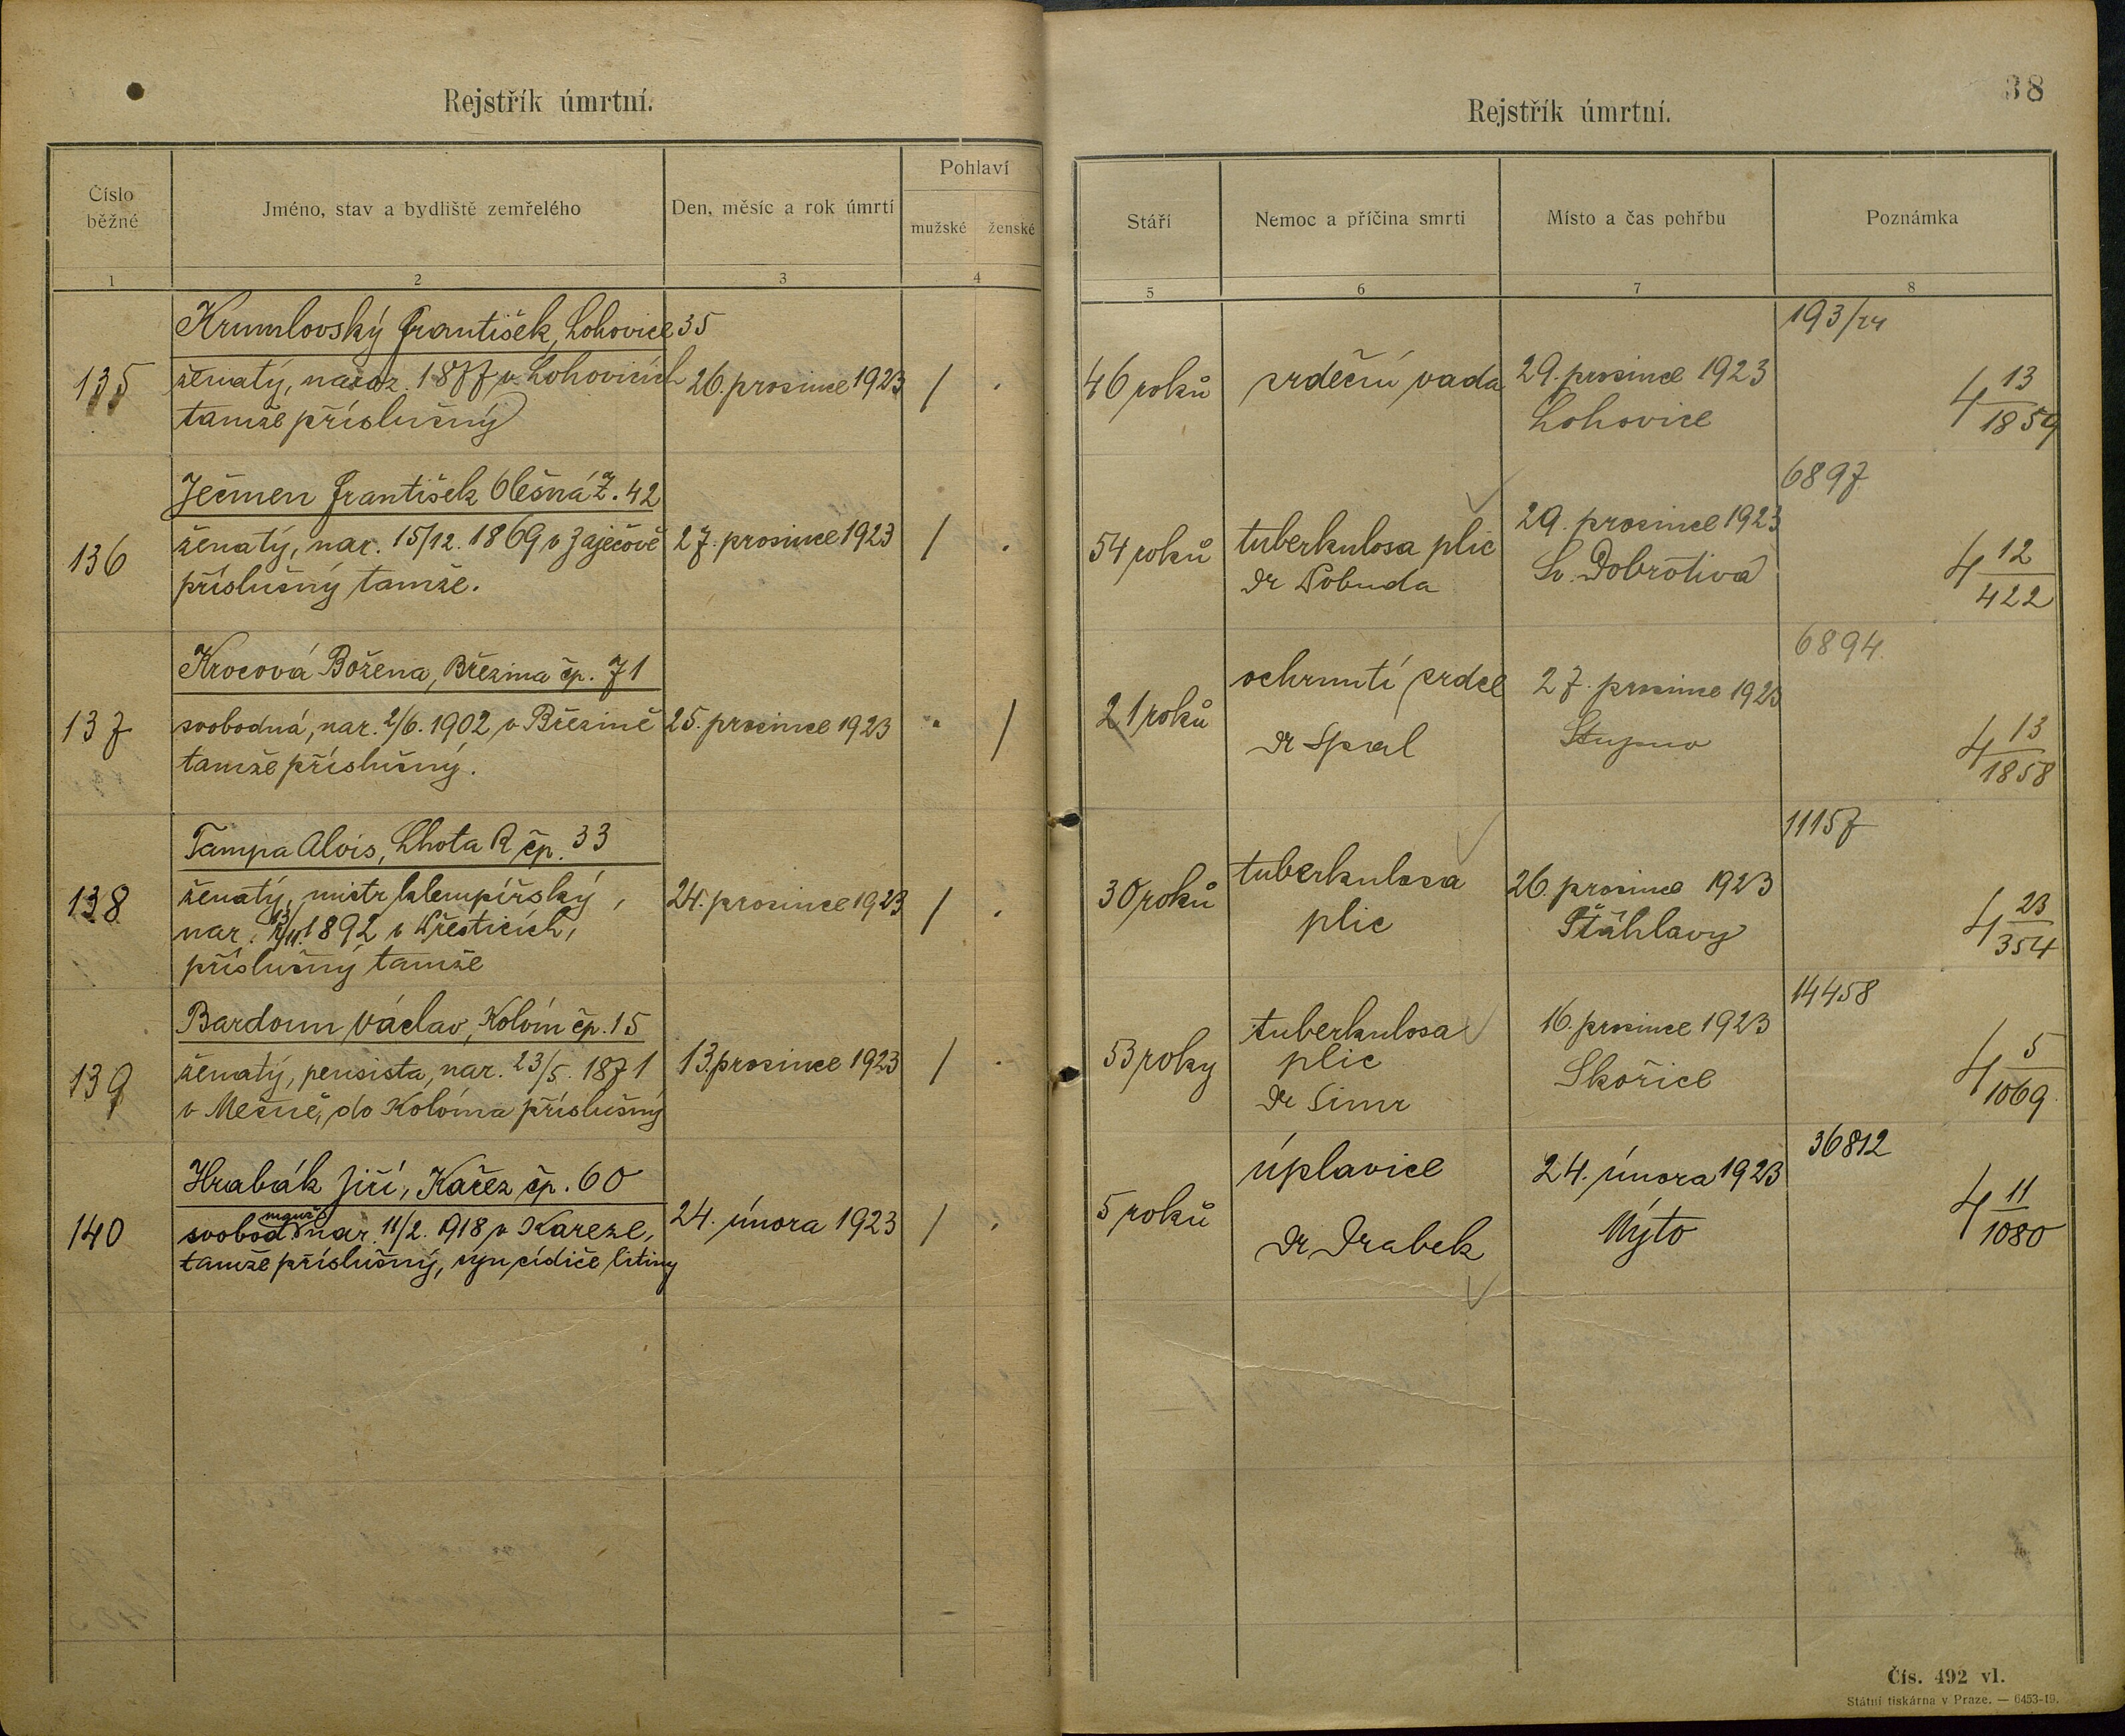 Rejstřík úmrtní.
Číslo běžné
Jméno, stav a bydliště zemřelého
Den, měsíc a rok úmrtí
Pohlaví
mužské ženské
1 2 3 4
Krumlovský František, Lohovice 35
135 ženatý, naroz. 1877 v Lohovicích 26. prosince 1923 / .
tamže příslušný
Ječmen František Olešná Z. 42
136 ženatý, nar. 15/12. 1869 v Zaječově 27. prosince 1923 / .
příslušný tamže.
Krocová Božena, Březina čp. 71
137 svobodná, nar. 2/6. 1902 v Březině 25. prosince 1923 . /
tamže příslušný.
Tampa Alois, Lhota R čp. 33
138 ženatý, mistr klempířský, 24. prosince 1923 / .
nar. 1892 v Přešticích,
příslušný tamže
Bardoun Václav, Kolvín čp. 15
139 ženatý, pensista, nar. 23/5. 1871 13. prosince 1923 / .
v Mešně, do Kolvína příslušný
Hrabák Jiří, Kařez čp. 60
140 svobod nar. 11/2. 1918 v Kareze, 24. února 1923 / .
tamže příslušný, syn cídiče litiny
38
Rejstřík úmrtní.
Stáří
Nemoc a příčina smrti
Místo a čas pohřbu
Poznámka
5 6 7 8
193/24
46 roků srdeční vada 29. prosince 1923
Lohovice
4 13/1859
6897
54 roků tuberkulosa plic 29. prosince 1923
Dr Pobuda Sv. Dobrotivá
4 12/422
6894.
21 roků ochrnutí srdce 27. prosince 1923
Dr Spal Stupno
4 13/1858
11157
30 roků tuberkulosa 26. prosince 1923
plic Šťáhlavy
4 23/354
14458
53 roky tuberkulosa 16. prosince 1923
plic Skořice
Dr Simr
4 5/1069
36812
5 roků úplavice 24. února 1923
Dr Drabek Mýto
4 11/1080
Čís. 492 vl.
Státní tiskárna v Praze. — 6453-19.